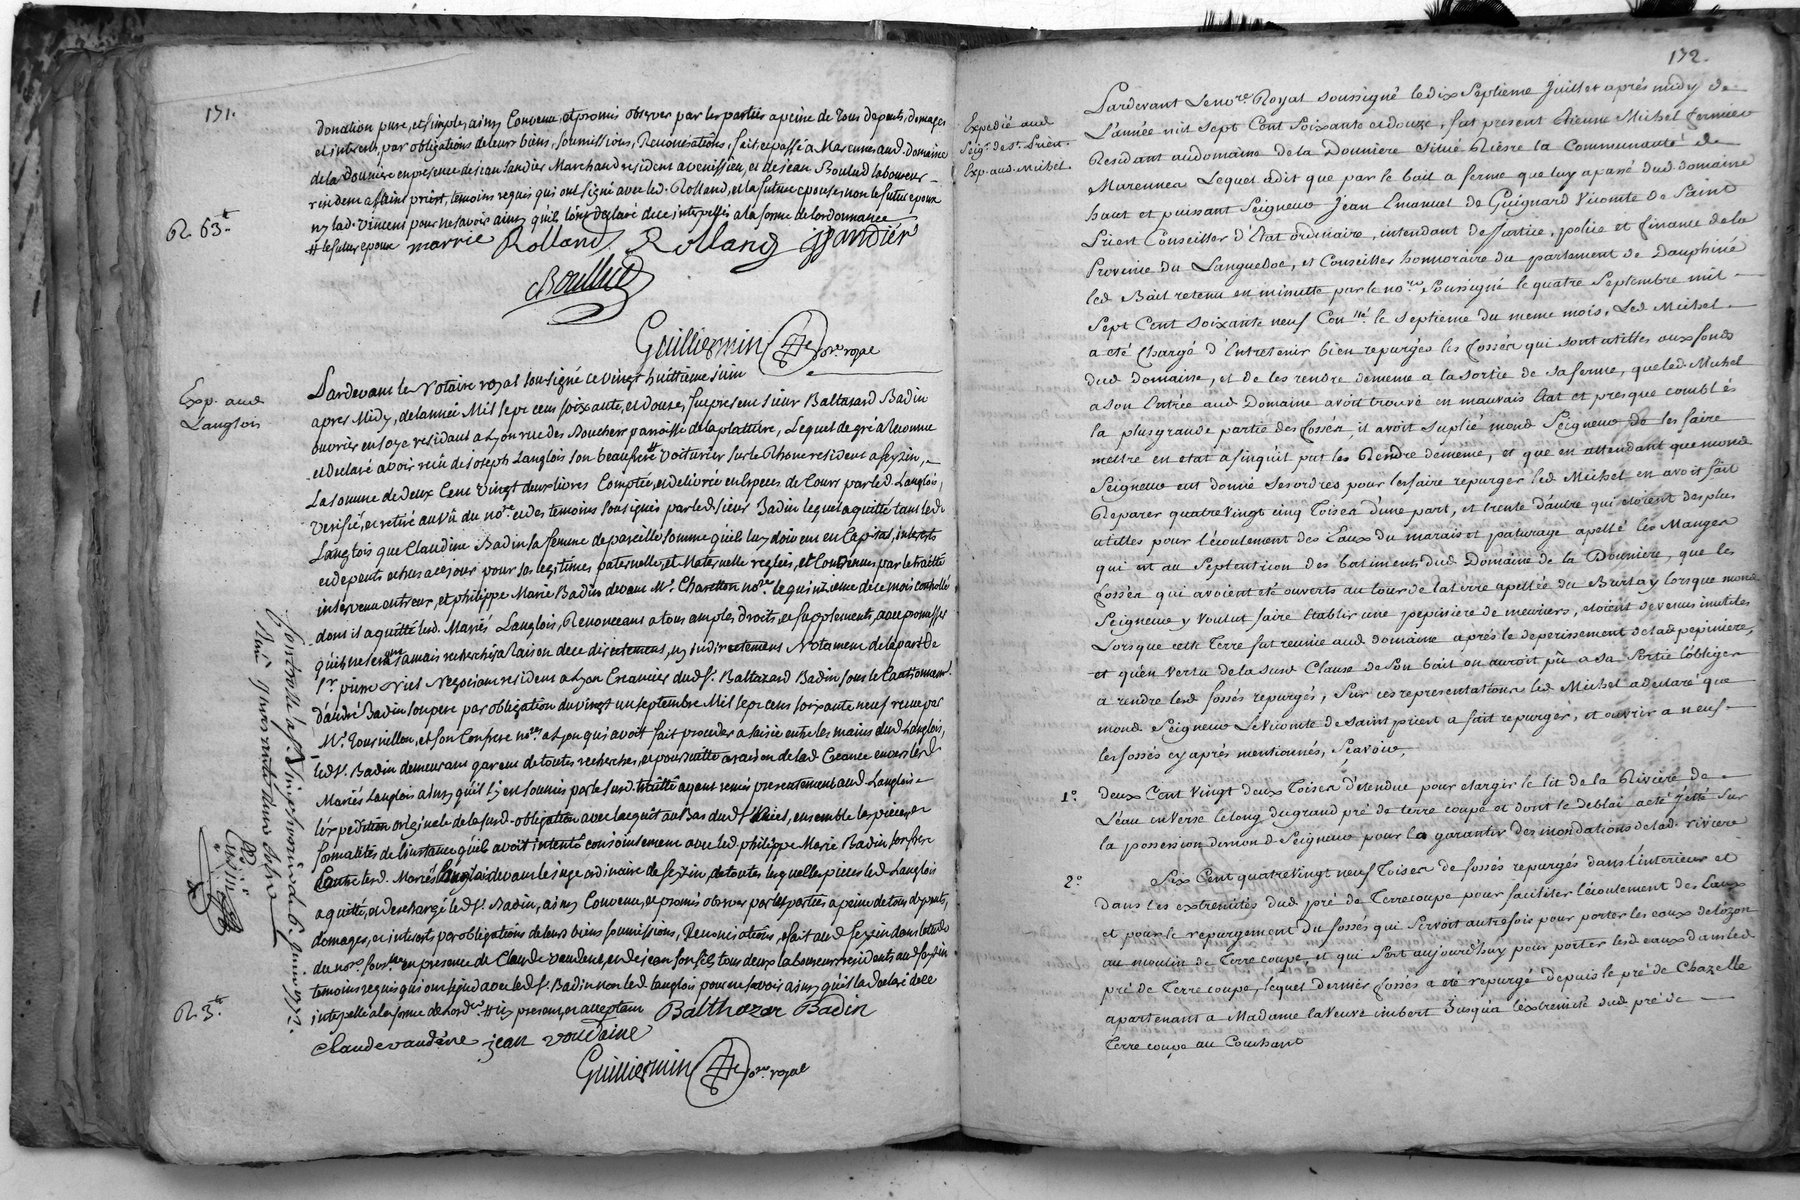 131.
donation pure, et simple, ainsy Convenu, et promis observer par les parties a peine de tous depents, domages
et interets, par obligations de leurs biens, soumissions, Renonciations, fait, et passé a Marennes, aud. domaine
de la douniere en presence de jean Jandier Marchand resident a venissieu, et de jean Boulud laboureur
resident a saint priest, temoins requis qui ont signé avec led. Rolland, et la future epouse, non le futur epoux
ny lad. Vincent pour ne savoir ainsy qu'ils l'ont declaré de ce interpellés a la forme de l'ordonnance
# le futur epoux marrie Rolland Rolland JJandier
R. 63.tt
Boullud
Guilliermin no.re royal
Exp. aud
Langlois
Pardevant le Notaire royal soussigné ce vingt huittieme juin
apres Midy, de l'année Mil sept cens soixante, et douze, fut present sieur Baltazard Badin
ouvrier en soye residant a Lyon rue des Bouchers parroisse de la platiere, Lequel de gré a Reconnu
et declaré avoir reçu de joseph Langlois son beaufrere # Voiturier sur le Rhone resident a feyzin,
La somme de deux Cent vingt deux livres Comptée, et delivrée en Especes de Cours par led. Langlois,
verifié, et retiré au vû du no.re et des temoins soussignés par led. sieur Badin lequel a quitté tant led.
Langlois que Claudine Badin sa femme de pareille somme qu'ils luy doivent en Capital, interets
et depents echus a ce jour pour ses legitimes paternelle, et Maternelle reglées, et Contenues par le traitté
intervenu entr'eux, et philippe Marie Badin devant M.e Charetton no.re le quinzieme de ce mois controllé
dont il a quitté lesd. Mariés Langlois, Renonceant a tous amples droits, et supplements, avec promesses
qu'ils ne seront jamais recherchés a Raison de ce directement, ny indirectement Notament de la part de
S.r pierre Viel Negociant resident a Lyon Creancier dud. S.r Baltazard Badin sous le Cautionnem.t
d'andré Badin son pere par obligation du vingt un septembre Mil sept cens soixante neuf reçue par
M.e Tournillon, et son Confrere no.res a Lyon qui avoit fait proceder a saisie entre les mains dud. Langlois,
led. S.r Badin demeurant garent de toutes recherches, et poursuitte a raison de lad. Creance envers lesd.
Mariés Langlois ainsy qu'il s'y est soumis par le susd. traitté ayant remis presentement aud. Langlois
l'expedition originale de la susd. obligation avec la quittance au Bas dud. S.r Viel, ensemble les pieces, et
formalités de l'instance qu'ils avoit intenté conjointement avec led. philippe Marie Badin son frere
Contre lesd. Mariés Langlois devant le juge ordinaire de feyzin, de toutes lesquelles pieces led. Langlois
a quitté, et dechargé led. S.r Badin, ainsy Convenu, et promis observer par les parties a peine de tous depents,
domages, et interets par obligations de leurs biens soumissions, Renonciations, fait aud. feyzin dans l'etude
du no.re soussigné en presence de Claude vaudene, et de jean son fils tous deux laboureurs residents aud. feyzin
temoins requis qui ont signé avec led. S.r Badin non led. Langlois pour ne savoir ainsy qu'il l'a declaré de ce
interpellé a la forme de l'ord.ce # icy present, et acceptant Balthazar Badin
R. 3.tt
claude vaudéne jean voudaine
Guilliermin no.re royal
132.
Expedié aud
Seig.r de S.t Priest.
Exp. aud. Michel
Pardevant Le no.re Royal soussigné le dix Septieme Juillet après midy de
L'année mil Sept Cent Soixante et douze, fut present Etienne Michel fermier
Residant au domaine de la Douniere situé Rière la Communauté de
Marennes Lequel a dit que par le bail a ferme que luy a passé dud. domaine
haut et puissant Seigneur Jean Emanuel de Guignard Vicomte de Saint
Priest Conseiller d'Etat ordinaire, intendant de Justice, police et finance de la
Province du Languedoc, et Conseiller honnoraire du parlement de Dauphiné
led. Bail retenu en minutte par le no.re Soussigné le quatre Septembre mil
Sept Cent soixante neuf Con.llé le Septieme du meme mois, Led. Michel
a eté Chargé d'Entretenir bien repurgés les fossés qui sont utilles aux fonds
dud. domaine, et de les rendre de meme a la sortie de sa ferme, que led. Michel
a son Entrée aud. Domaine avoit trouvé en mauvais Etat et presque comblés
la plus grande partie des fossés, il avoit suplié mond. Seigneur de les faire
mettre en etat afin qu'il put les Rendre de meme, et que en attendant que mond.
Seigneur eut donné ses ordres pour les faire repurger led. Michel en avoit fait
Reparer quatre vingt cinq Toises d'une part, et trente d'autre qui etoient des plus
utilles pour l'écoulement des Eaux du marais et paturage apellé les Manges
qui est au Septentrion des batiments dud. Domaine de la Douniere, que les
fossés qui avoient eté ouverts au tour de la terre apellée du Burlay lorsque mond.
Seigneur y voulut faire Etablir une pepiniere de meuriers, etoient devenus inutiles
Lorsque cette Terre fut reunie aud. domaine après le deperissement de lad. pepiniere,
et qu'en vertu de la susd. Clause de son bail on auroit pû a sa sortie l'obliger
a rendre lesd. fossés repurgés, Sur ces representations led. Michel a declaré que
mond. Seigneur Le Vicomte de Saint priest a fait repurger, et ouvrir a neuf
les fossés cy après mentionnés, Sçavoir,
1.o deux Cent Vingt deux Toises d'étendue pour elargir le lit de la Riviere de
L'eau inverse le long du grand pré de terre coupe et dont le deblai a eté jetté sur
la possession de mond. Seigneur pour la garantir des inondations de lad. riviere
2.o Six Cent quatre Vingt neuf Toises de fossés repurgés dans l'interieur et
dans les extremités dud. pré de Terre coupe pour faciliter l'écoulement des Eaux
et pour le repurgement du fossés qui Servoit autrefois pour porter les eaux de l'ozon
au moulin de Terre coupe, et qui Sert aujourd'huy pour porter lesd. eaux dans led.
pré de Terre coupe, lequel dernier fossés a eté repurgé depuis le pré de Chazelle
apartenant a Madame la Veuve imbert Jusqu'à l'extremité dud. pré de
Terre coupe au Couchant